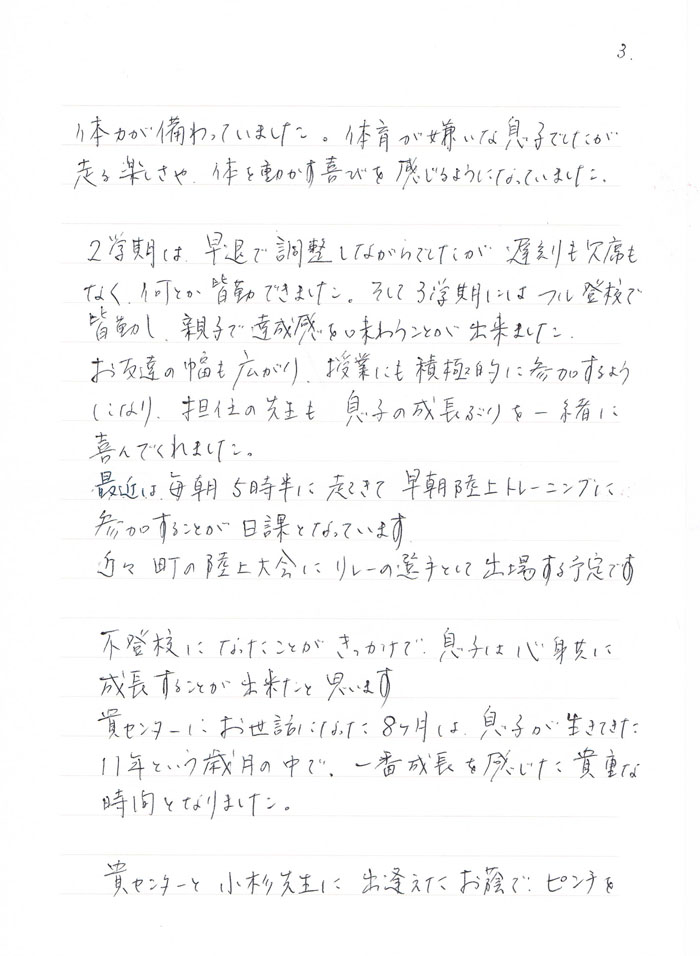 3.
体力が備わっていました。体育が嫌いな息子でしたが
走る楽しさや、体を動かす喜びを感じるようになっていました。
2学期は、早退で調整しながらでしたが 遅刻も欠席も
なく、何とか皆勤できました。そして3学期にはフル登校で
皆勤し、親子で達成感を味わうことが出来ました。
お友達の幅も広がり、授業にも積極的に参加するよう
になり、担任の先生も 息子の成長ぶりを一緒に
喜んでくれました。
最近は、毎朝5時半に起きて 早朝陸上トレーニングに
参加することが日課となっています
近々町の陸上大会にリレーの選手として出場する予定です
不登校になったことがきっかけで、息子は心身共に
成長することが出来たと思います
貴センターにお世話になった8ヶ月は、息子が生きてきた
11年という歳月の中で、一番成長を感じた貴重な
時間となりました。
貴センターと小杉先生に出逢えたお蔭で、ピンチを